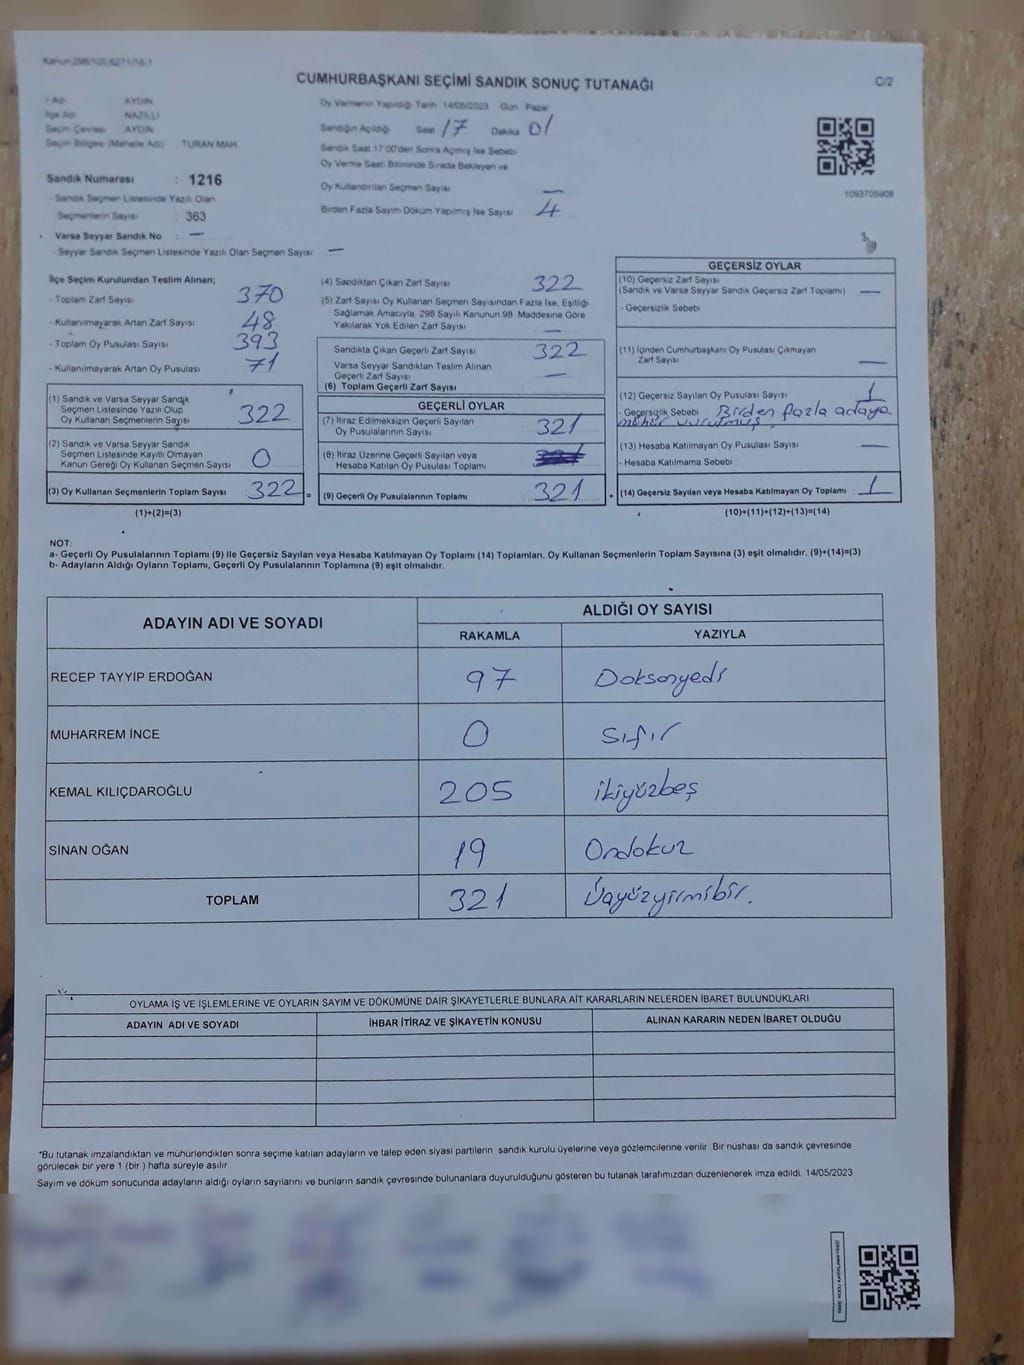 Kanun:298/100,6271/18-1
CUMHURBAŞKANI SEÇİMİ SANDIK SONUÇ TUTANAĞI
C/2
İl Adı AYDIN
İlçe Adı NAZİLLİ
Seçim Çevresi AYDIN
Seçim Bölgesi (Mahalle Adı) TURAN MAH.
Sandık Numarası : 1216
- Sandık Seçmen Listesinde Yazılı Olan
Seçmenlerin Sayısı : 363
Varsa Seyyar Sandık No : —
- Seyyar Sandık Seçmen Listesinde Yazılı Olan Seçmen Sayısı : —
Oy Vermenin Yapıldığı Tarih 14/05/2023 Gün Pazar
Sandığın Açıldığı Saat 17 Dakika 01
Sandık Saat 17:00'den Sonra Açımış İse Sebebi
Oy Verme Saati Bitiminde Sırada Bekleyen ve
Oy Kullandırılan Seçmen Sayısı —
Birden Fazla Sayım Döküm Yapılmış İse Sayısı 4
1093705908
İlçe Seçim Kurulundan Teslim Alınan;
- Toplam Zarf Sayısı 370
- Kullanılmayarak Artan Zarf Sayısı 48
- Toplam Oy Pusulası Sayısı 393
- Kullanılmayarak Artan Oy Pusulası 71
(1) Sandık ve Varsa Seyyar Sandık
Seçmen Listesinde Yazılı Olup
Oy Kullanan Seçmenlerin Sayısı 322
(2) Sandık ve Varsa Seyyar Sandık
Seçmen Listesinde Kayıtlı Olmayan
Kanun Gereği Oy Kullanan Seçmen Sayısı 0
(3) Oy Kullanan Seçmenlerin Toplam Sayısı 322 =
(1)+(2)=(3)
(4) Sandıktan Çıkan Zarf Sayısı 322
(5) Zarf Sayısı Oy Kullanan Seçmen Sayısından Fazla İse, Eşitliği
Sağlamak Amacıyla, 298 Sayılı Kanunun 98. Maddesine Göre
Yakılarak Yok Edilen Zarf Sayısı —
Sandıkta Çıkan Geçerli Zarf Sayısı 322
Varsa Seyyar Sandıktan Teslim Alınan
Geçerli Zarf Sayısı —
(6) Toplam Geçerli Zarf Sayısı :
GEÇERLİ OYLAR
(7) İtiraz Edilmeksizin Geçerli Sayılan
Oy Pusulalarının Sayısı 321
(8) İtiraz Üzerine Geçerli Sayılan veya
Hesaba Katılan Oy Pusulası Toplamı
(9) Geçerli Oy Pusulalarının Toplamı 321 +
GEÇERSİZ OYLAR
(10) Geçersiz Zarf Sayısı
(Sandık ve Varsa Seyyar Sandık Geçersiz Zarf Toplamı) —
- Geçersizlik Sebebi
(11) İçinden Cumhurbaşkanı Oy Pusulası Çıkmayan
Zarf Sayısı —
(12) Geçersiz Sayılan Oy Pusulası Sayısı 1
- Geçersizlik Sebebi Birden fazla adaya
mühür vurulmuş.
(13) Hesaba Katılmayan Oy Pusulası Sayısı —
- Hesaba Katılmama Sebebi :
(14) Geçersiz Sayılan veya Hesaba Katılmayan Oy Toplamı : 1
(10)+(11)+(12)+(13)=(14)
NOT:
a- Geçerli Oy Pusulalarının Toplamı (9) ile Geçersiz Sayılan veya Hesaba Katılmayan Oy Toplamı (14) Toplamları, Oy Kullanan Seçmenlerin Toplam Sayısına (3) eşit olmalıdır. (9)+(14)=(3)
b- Adayların Aldığı Oyların Toplamı, Geçerli Oy Pusulalarının Toplamına (9) eşit olmalıdır.
ADAYIN ADI VE SOYADI ALDIĞI OY SAYISI
RAKAMLA YAZIYLA
RECEP TAYYİP ERDOĞAN 97 Doksanyedi
MUHARREM İNCE 0 sıfır
KEMAL KILIÇDAROĞLU 205 ikiyüzbeş
SİNAN OĞAN 19 Ondokuz
TOPLAM 321 Üçyüzyirmibir.
OYLAMA İŞ VE İŞLEMLERİNE VE OYLARIN SAYIM VE DÖKÜMÜNE DAİR ŞİKAYETLERLE BUNLARA AİT KARARLARIN NELERDEN İBARET BULUNDUKLARI
ADAYIN ADI VE SOYADI İHBAR İTİRAZ VE ŞİKAYETİN KONUSU ALINAN KARARIN NEDEN İBARET OLDUĞU
*Bu tutanak imzalandıktan ve mühürlendikten sonra seçime katılan adayların ve talep eden siyasi partilerin sandık kurulu üyelerine veya gözlemcilerine verilir. Bir nüshası da sandık çevresinde
görülecek bir yere 1 (bir ) hafta süreyle asılır
Sayım ve döküm sonucunda adayların aldığı oyların sayılarını ve bunların sandık çevresinde bulunanlara duyurulduğunu gösteren bu tutanak tarafımızdan düzenlenerek imza edildi. 14/05/2023